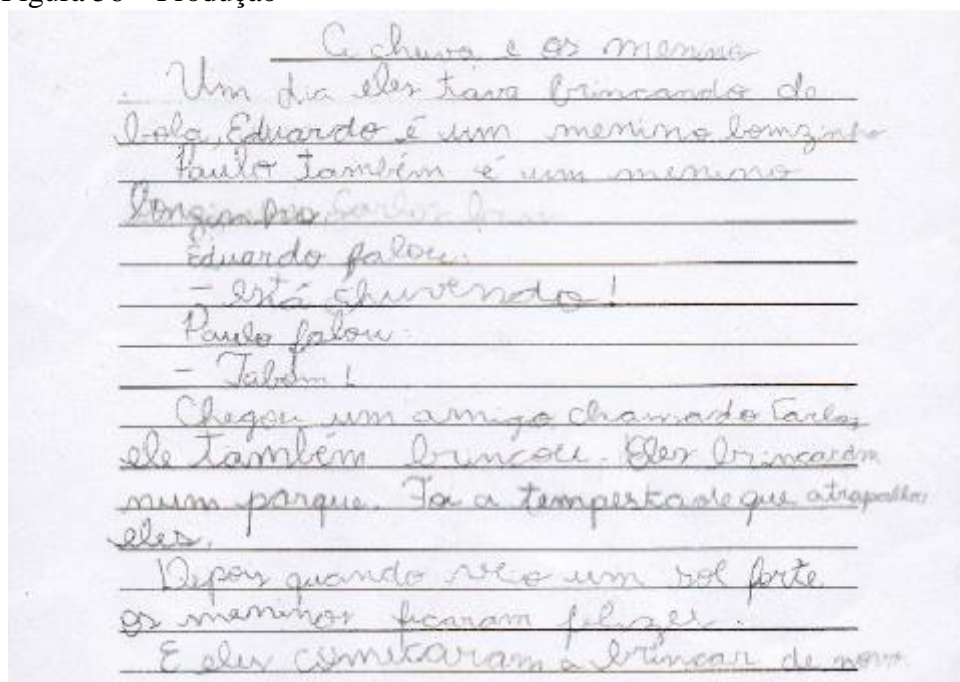 A chuva e os menino
Um dia eles tava brincando de
bola, Eduardo é um menino bomzinho
Paulo também é um menino
bonzinho Carlos
Eduardo falou:
- está chuvendo!
Paulo falou:
- Tabom!
Chegou um amigo chamado Carlos
ele também brincou. Eles brincaram
num parque. Foi a tempestade que atrapalhou
eles.
Depois quando veio um sol forte
os meninos ficaram felizes.
E eles comecaram a brincar de novo.